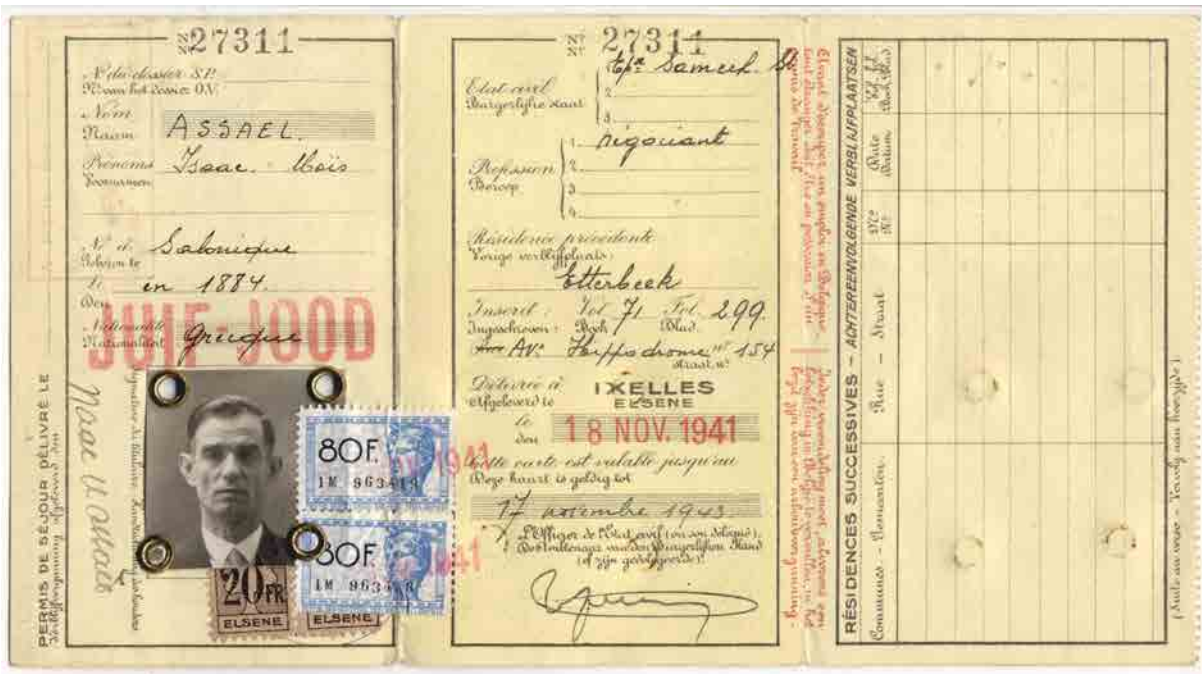 NN 27311
N° du dossier S.P.
N° van het dossier O.V.
Nom
Naam
ASSAEL.
Prénoms
Voornamen
Isaac. Moïs
Né à
Geboren te
Salonique
le
Den
en 1884.
JUIF-JOOD
Nationalité
Nationaliteit
grecque
PERMIS DE SÉJOUR DÉLIVRÉ LE
Verblijfsvergunning afgeleverd den
Signature du titulaire.
80F.
1M 963
80F.
1M 963
1941
1941
20FR
ELSENE
ELSENE
NN 27311
Etat civil
Burgerlijke staat
1. Ep. Sameck.
2.
3.
Profession
Beroep
1. négociant
2.
3.
4.
Résidence précédente
Vorige verblijfplaats:
Etterbeek
Inscrit: Vol. 71 Fol. 299.
Ingeschreven: Boek Blad.
Rue Av. Hippodrome n° 154
straat n°
Délivrée à
Afgeleverd te
IXELLES
ELSENE
le
den
18 NOV. 1941
Cette carte est valable jusqu'au
Deze kaart is geldig tot
17 novembre 1943
L'Officier de l'Etat civil (ou son délégué).
De Ambtenaar van den Burgerlijken Stand
(of zijn gevolgegeerde).
RÉSIDENCES SUCCESSIVES - ACHTEREENVOLGENDE VERBLIJFPLAATSEN
Communes - Gemeenten.
Rue - Straat
N°
N°
Date
Datum
(Suite au verso - Vervolg aan keerzijde).